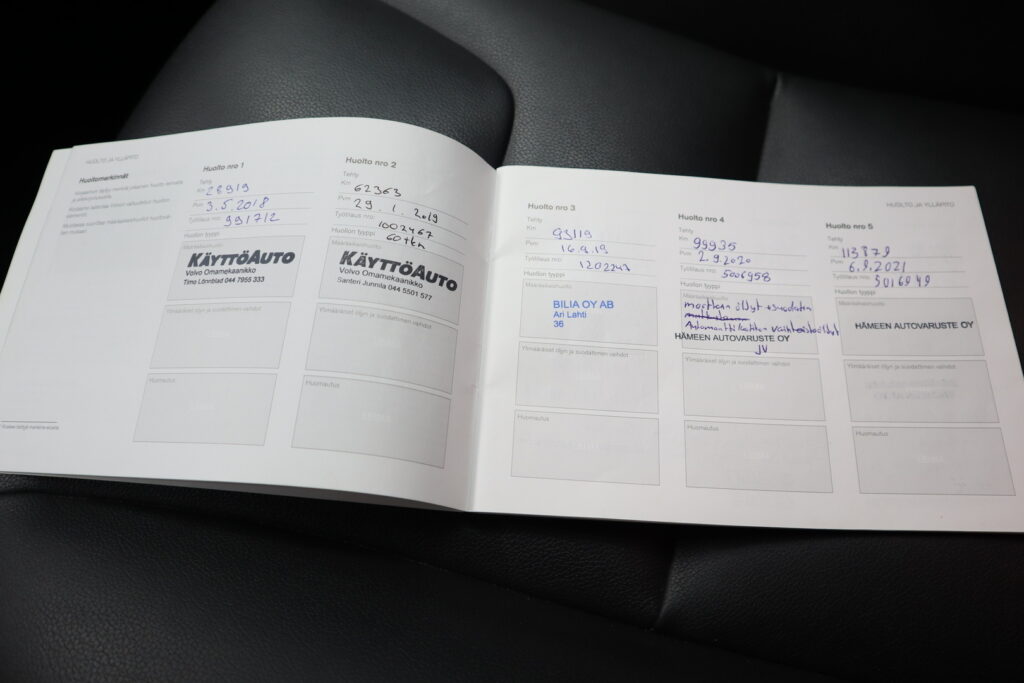 HUOLTO JA YLLÄPITO
Huoltomerkinnät
Huolto nro 1
Tehty
Km 28919
Pvm 3.5.2018
Työtilaus nro: 991712
Huollon tyyppi
Määräaikaishuolto
KÄYTTÖAUTO
Volvo Omamekaanikko
Timo Lönnblad 044 7955 333
Ylimääräiset öljyn ja suodattimen vaihdot
Huomautus
Huolto nro 2
Tehty
Km 62363
Pvm 29.1.2019
Työtilaus nro: 1002467
Huollon tyyppi 60 tkm
Määräaikaishuolto
KÄYTTÖAUTO
Volvo Omamekaanikko
Santeri Junnila 044 5501 577
Ylimääräiset öljyn ja suodattimen vaihdot
Huomautus
Huolto nro 3
Tehty
Km 93119
Pvm 16.9.19
Työtilaus nro:
Huollon tyyppi
Määräaikaishuolto
BILIA OY AB
Ari Lahti
36
Ylimääräiset öljyn ja suodattimen vaihdot
Huomautus
Huolto nro 4
Tehty
Km 99935
Pvm 2.9.2020
Työtilaus nro: 5006958
Huollon tyyppi
moottorin öljyt + suodatin
Automaattilaatikon vaihteistoöljyt
HÄMEEN AUTOVARUSTE OY
JV
Ylimääräiset öljyn ja suodattimen vaihdot
Huomautus
HUOLTO JA YLLÄPITO
Huolto nro 5
Tehty
Km 113879
Pvm 6.9.2021
Työtilaus nro: 5016949
Huollon tyyppi
Määräaikaishuolto
HÄMEEN AUTOVARUSTE OY
Ylimääräiset öljyn ja suodattimen vaihdot
Huomautus